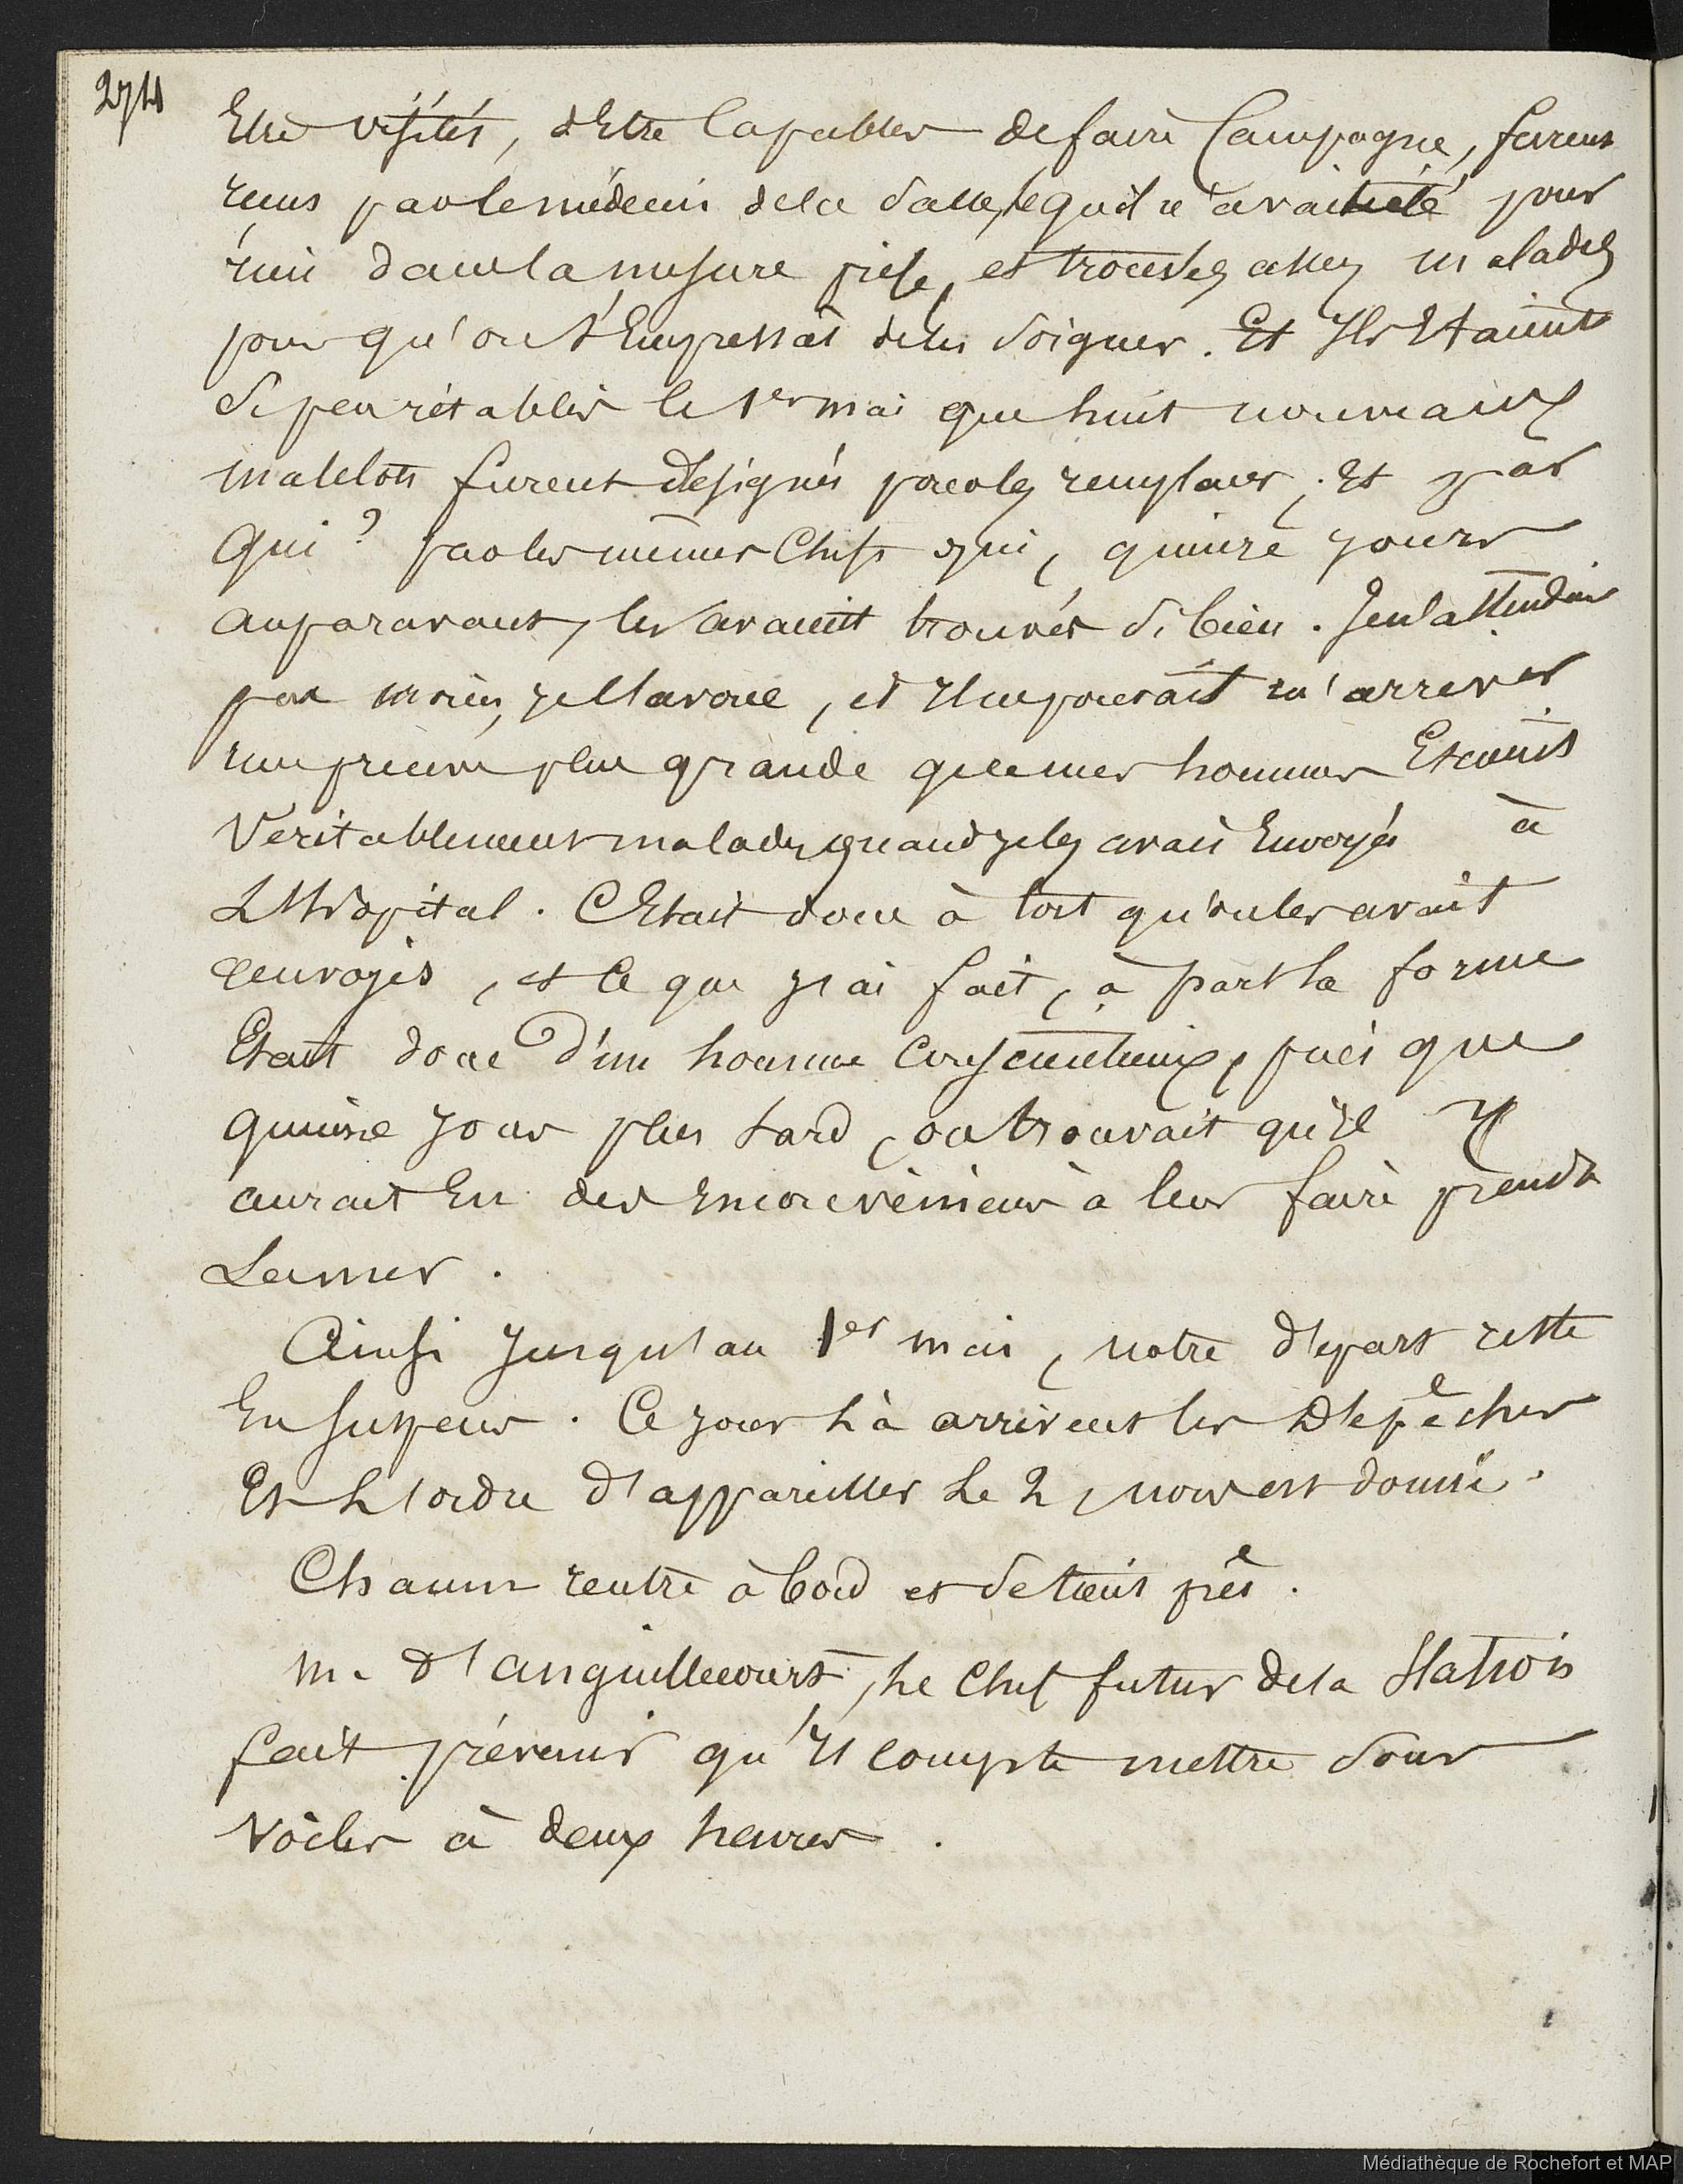 274
Etre visités, d'Etre Capables de faire Campagne, furent
reçus par le médecin de la Salle, lequel n'avait été pour
rien dans la mesure prise, et trouvés assez malades
pour qu'on s'Empressât de les Soigner. Et Ils Etaient
Si peu rétablis le 1er mai que huit nouveaux
matelots furent désignés pour les remplacer; Et par
Qui? par les mêmes Chefs qui, quinze jours
auparavant, les avaient trouvés Si bien. Je n'attendais
pas moins, je l'avoue, et Il ne pouvait m'arriver
une preuve plus grande que mes hommes Etaient
Veritablement malades quand je les avais Envoyés à
L'Hôpital. C'Etait donc à tort qu'on les avait
renvoyés, et Ce que J'ai fait, à part la forme
Etait donc d'un homme Consciencieux, puis que
quinze Jours plus tard, on trouvait qu'il Y
aurait Eu des Inconvénients à leur faire prendre
La mer.
Ainsi Jusqu'au 1er mai, notre départ reste
En Suspens. Ce jour là arrivent les Dépêches
Et L'ordre d'appareiller Le 2, nous est donné.
Chacun rentre à bord et Se tient prêt.
M. d'anguillecourt, Le Chef futur de la Station
fait prévenir qu'Il compte mettre Sous
Voiles à deux heures.
Médiathèque de Rochefort et MAP